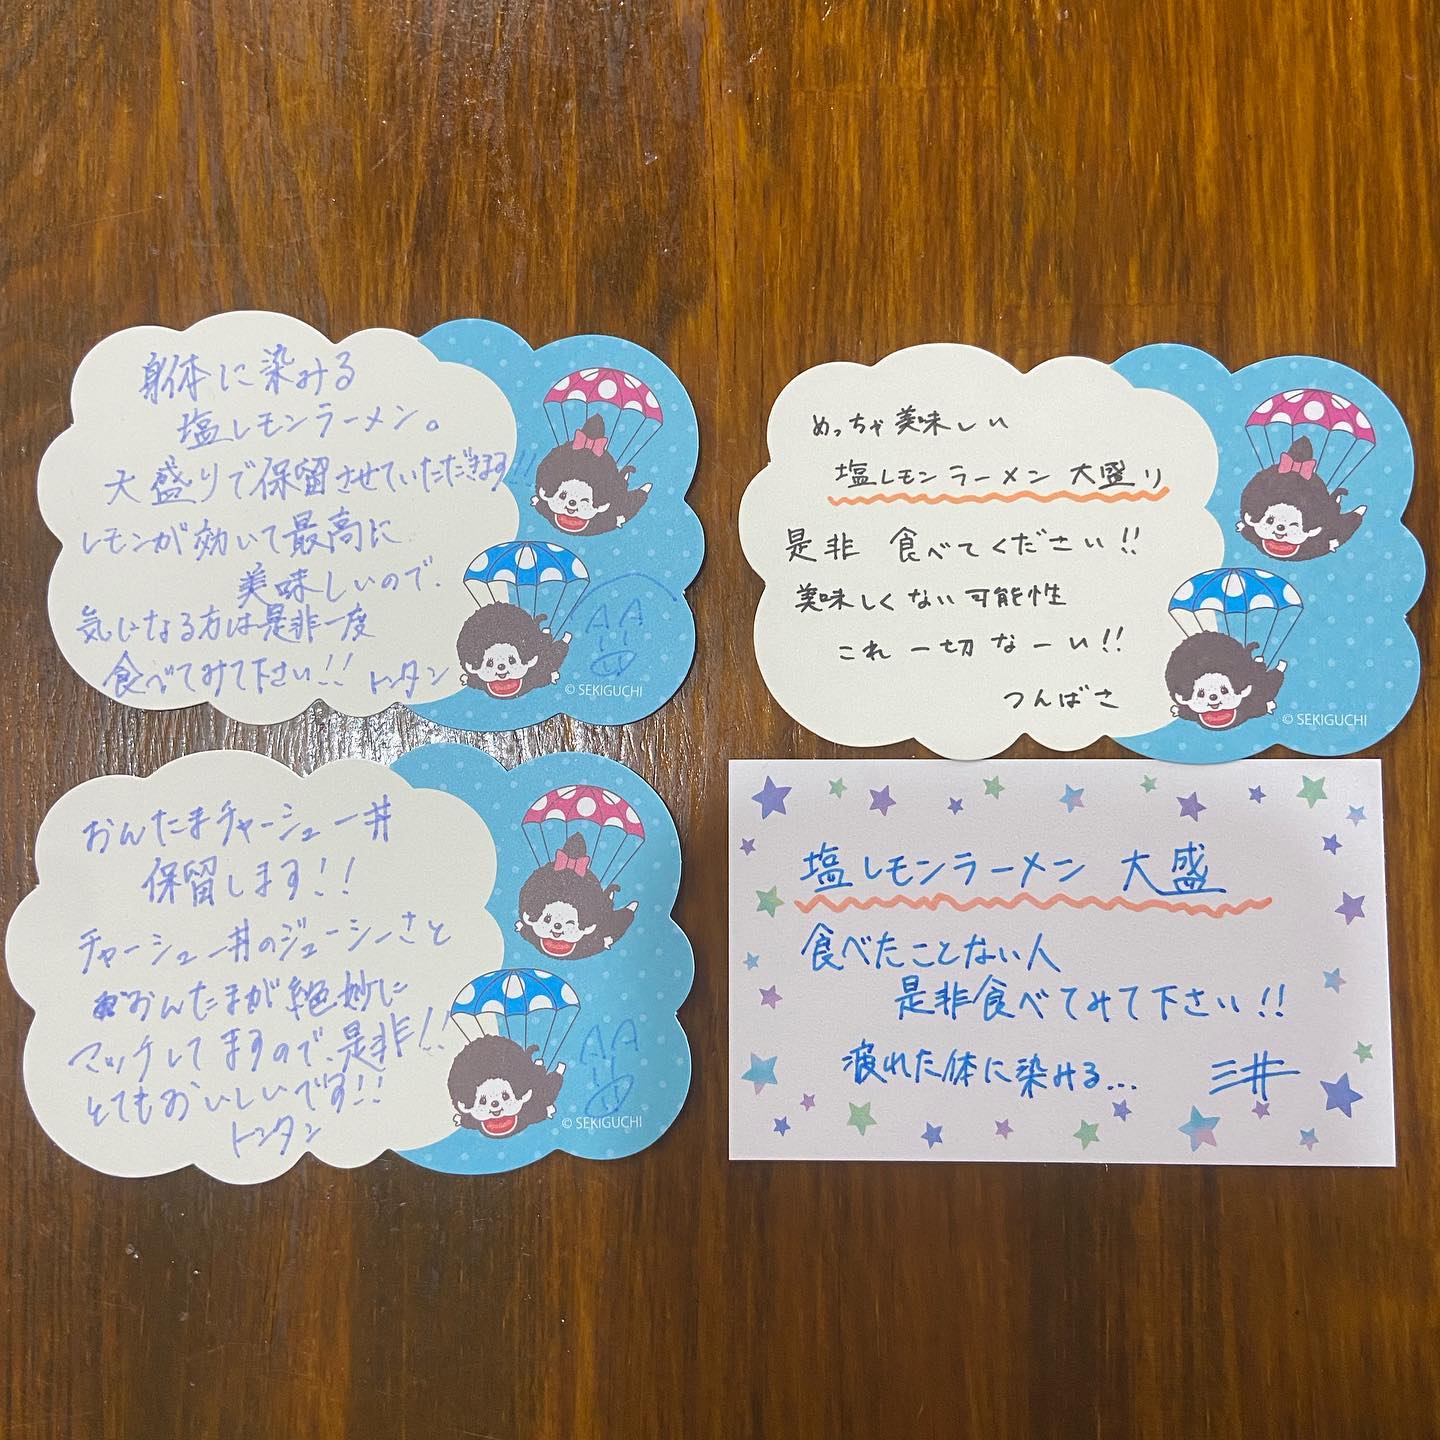 身体に染みる
塩レモンラーメン。
大盛りで保留させていただきます!!
レモンが効いて最高に
美味しいので、
気になる方は是非一度
食べてみて下さい!! トンタン
© SEKIGUCHI
めっちゃ美味しい
塩レモンラーメン 大盛り
是非 食べてください!!
美味しくない可能性
これ一切なーい!!
つんばさ
© SEKIGUCHI
おんたまチャーシュー丼
保留します!!
チャーシュー丼のジューシーさと
おんたまが絶妙に
マッチしてますので、是非!!
とてもおいしいです!!
トンタン
© SEKIGUCHI
塩レモンラーメン 大盛
食べたことない人
是非食べてみて下さい!!
疲れた体に染みる... 三井